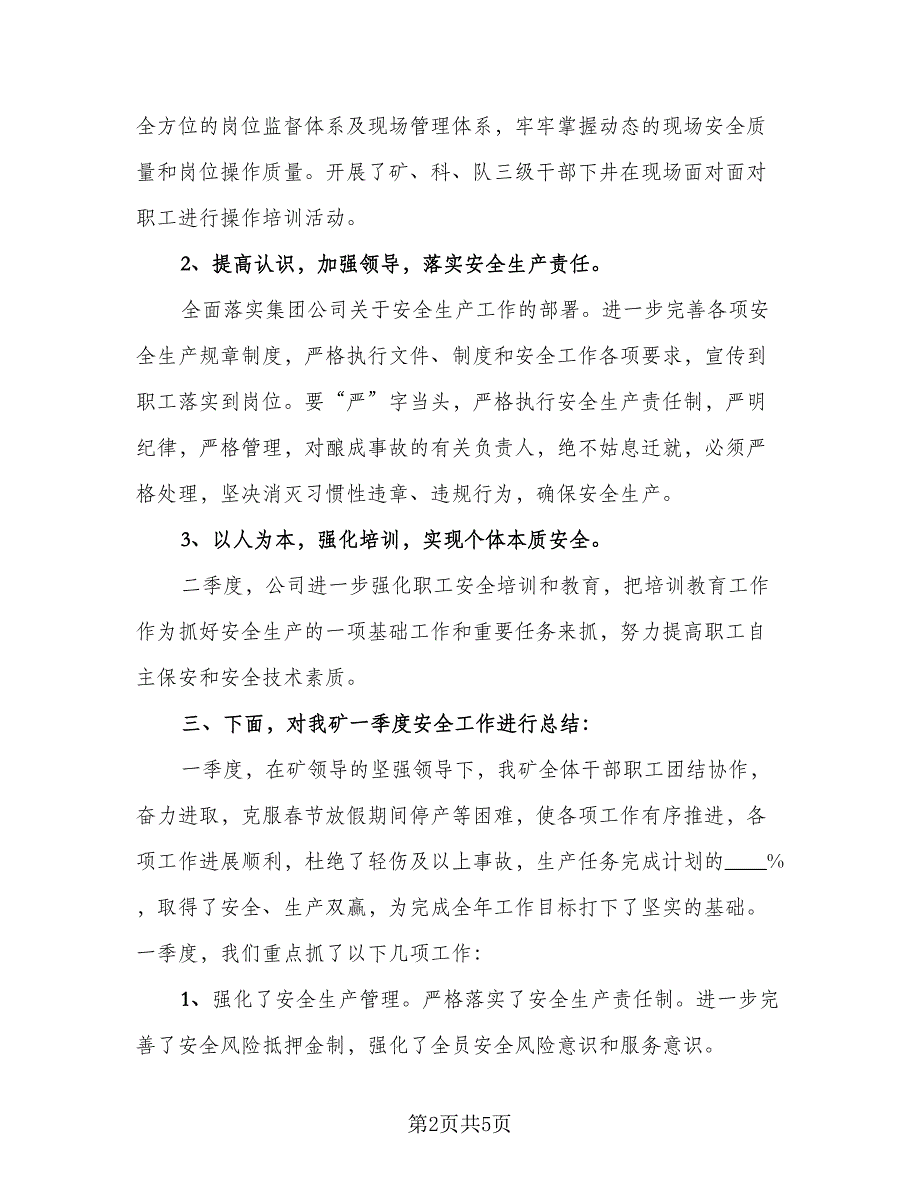 全方位的岗位监督体系及现场管理体系，牢牢掌握动态的现场安全质
量和岗位操作质量。开展了矿、科、队三级干部下井在现场面对面对
职工进行操作培训活动。
2、提高认识，加强领导，落实安全生产责任。
全面落实集团公司关于安全生产工作的部署。进一步完善各项安
全生产规章制度，严格执行文件、制度和安全工作各项要求，宣传到
职工落实到岗位。要“严”字当头，严格执行安全生产责任制，严明
纪律，严格管理，对酿成事故的有关负责人，绝不姑息迁就，必须严
格处理，坚决消灭习惯性违章、违规行为，确保安全生产。
3、以人为本，强化培训，实现个体本质安全。
二季度，公司进一步强化职工安全培训和教育，把培训教育工作
作为抓好安全生产的一项基础工作和重要任务来抓，努力提高职工自
主保安和安全技术素质。
三、下面，对我矿一季度安全工作进行总结：
一季度，在矿领导的坚强领导下，我矿全体干部职工团结协作，
奋力进取，克服春节放假期间停产等困难，使各项工作有序推进，各
项工作进展顺利，杜绝了轻伤及以上事故，生产任务完成计划的____%
，取得了安全、生产双赢，为完成全年工作目标打下了坚实的基础。
一季度，我们重点抓了以下几项工作：
1、强化了安全生产管理。严格落实了安全生产责任制。进一步完
善了安全风险抵押金制，强化了全员安全风险意识和服务意识。
第2页共5页